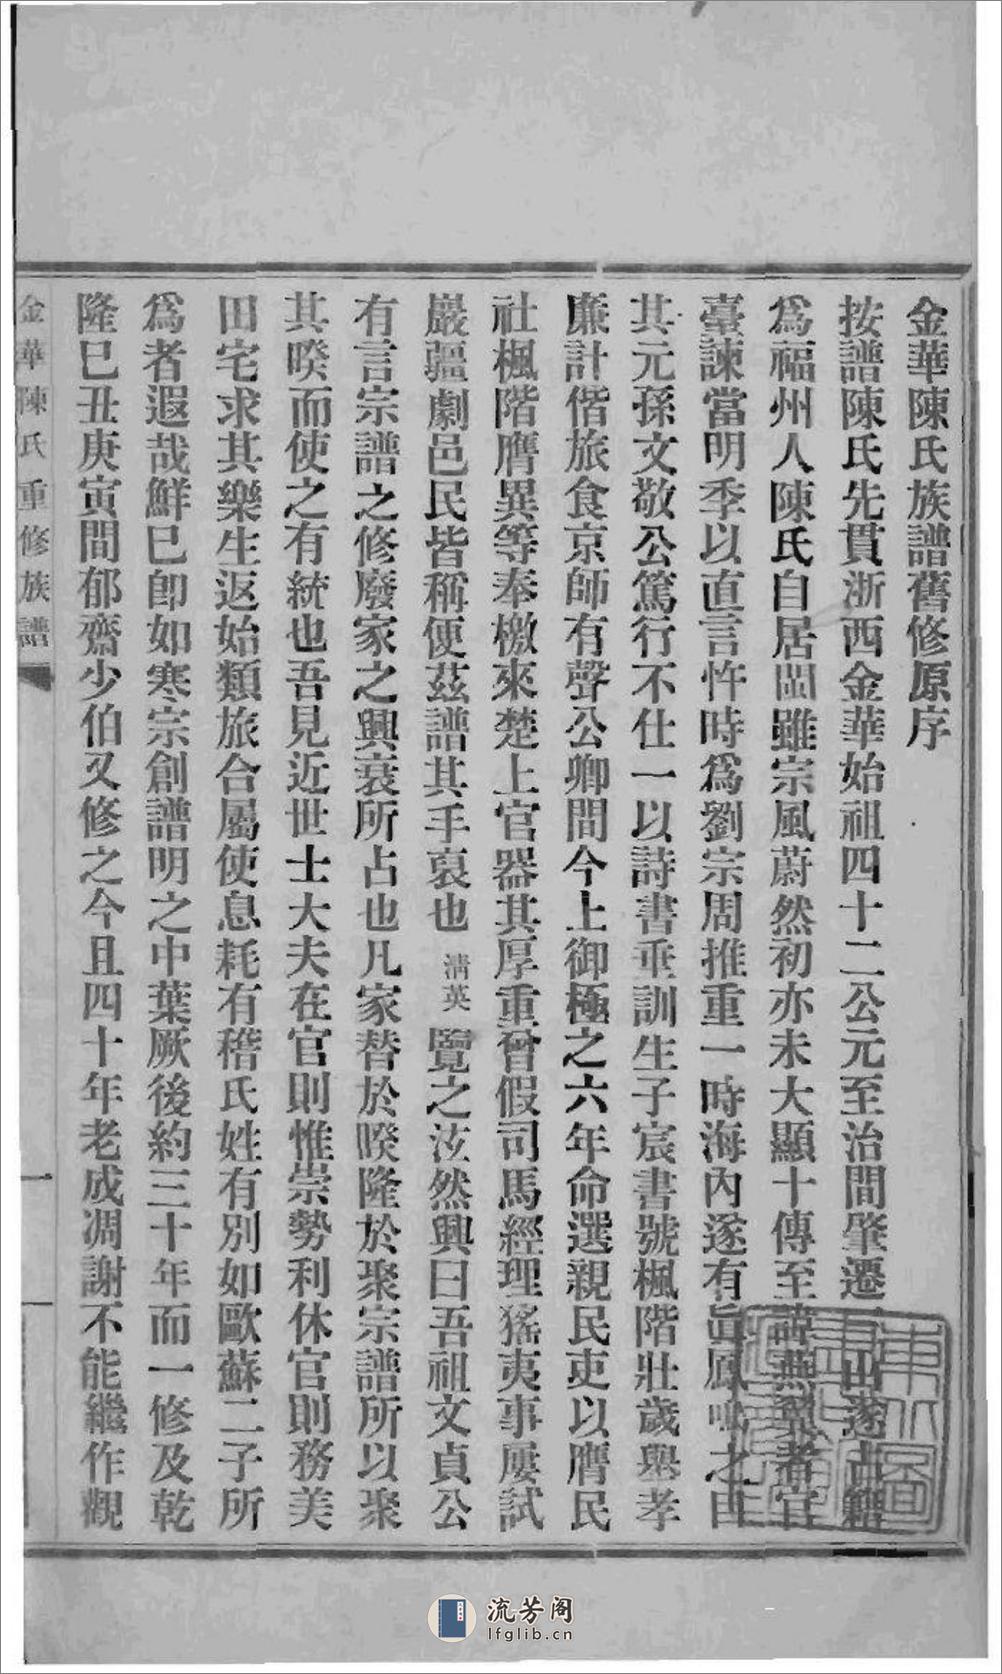 金華陳氏族譜舊修原序
按譜陳氏先貫浙西金華始祖四十二公元至治間肇遷 山遂占籍
爲福州人陳氏自居閩雖宗風蔚然初亦未大顯十傳至諱燕翼者官
臺諫當明季以直言忤時爲劉宗周推重一時海內遂有眞鳳鳴之目
其元孫文敬公篤行不仕一以詩書垂訓生子宸書號楓階壯歲舉孝
廉計偕旅食京師有聲公卿間今上御極之六年命選親民吏以膺民
社楓階膺異等奉檄來楚上官器其厚重曾假司馬經理猺夷事屢試
巖疆劇邑民皆稱便茲譜其手裒也清英覽之泫然興曰吾祖文貞公
有言宗譜之修廢家之興衰所占也凡家替於暌隆於聚宗譜所以聚
其暌而使之有統也吾見近世士大夫在官則惟崇勢利休官則務美
田宅求其樂生返始類旅合屬使息耗有稽氏姓有別如歐蘇二子所
爲者遐哉鮮已卽如寒宗創譜明之中葉厥後約三十年而一修及乾
隆已丑庚寅間郁齋少伯又修之今且四十年老成凋謝不能繼作觀
金華陳氏重修族譜
一
流芳阁
lfglib.cn